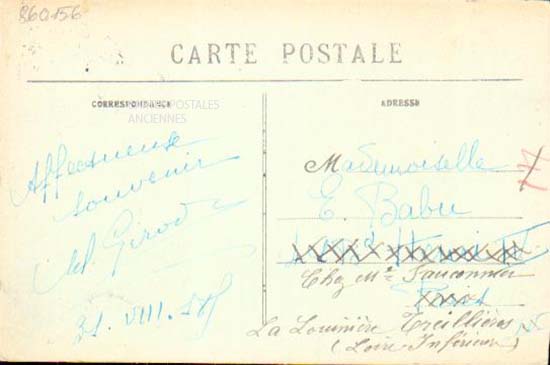 860156
CARTE POSTALE
CORRESPONDANCE
POSTALES
ANCIENNES
ADRESSE
Affectueuse
souvenir
Girod
31. VIII.
Mademoiselle
E. Babu
Chez Mr Fauconnier
La Louinière Treillières
(Loire-Inférieure)